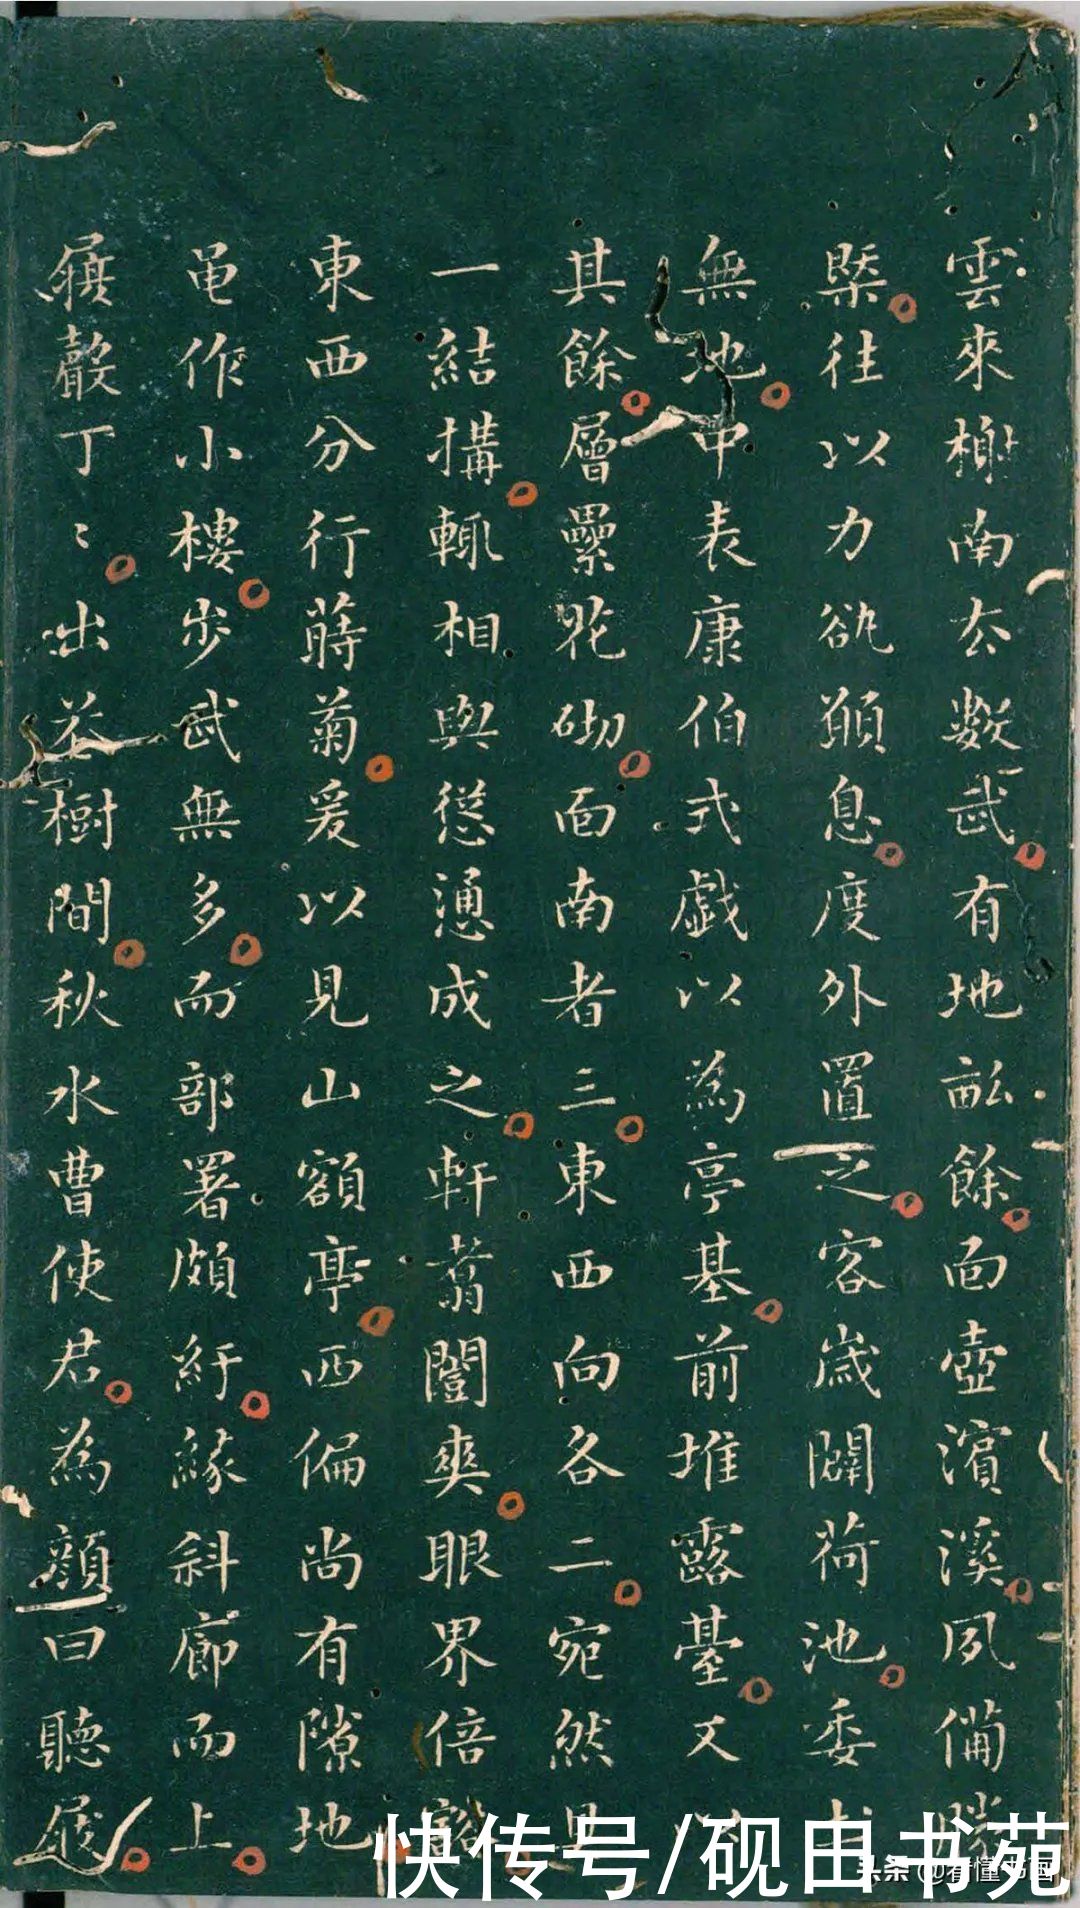 雲來榭南去數武有地畝餘面壺濱溪夙備勝
槩往以力欲息度外置之客歲闢荷池委土
無地中表康伯式戲以為亭基前堆露臺又以
其餘層壘花砌面南者三東西向各二宛然具
一結搆輒相與慫慂成之軒翥闓爽眼界倍豁
東西分行蒔菊爰以見山額亭西偏尚有隙地
作小樓步武無多而部署頗紆緣斜廊而上
屐聲丁〻出花樹間秋水曹使君為顏曰聽屐
头条 @看懂书画
快传号/砚田书苑